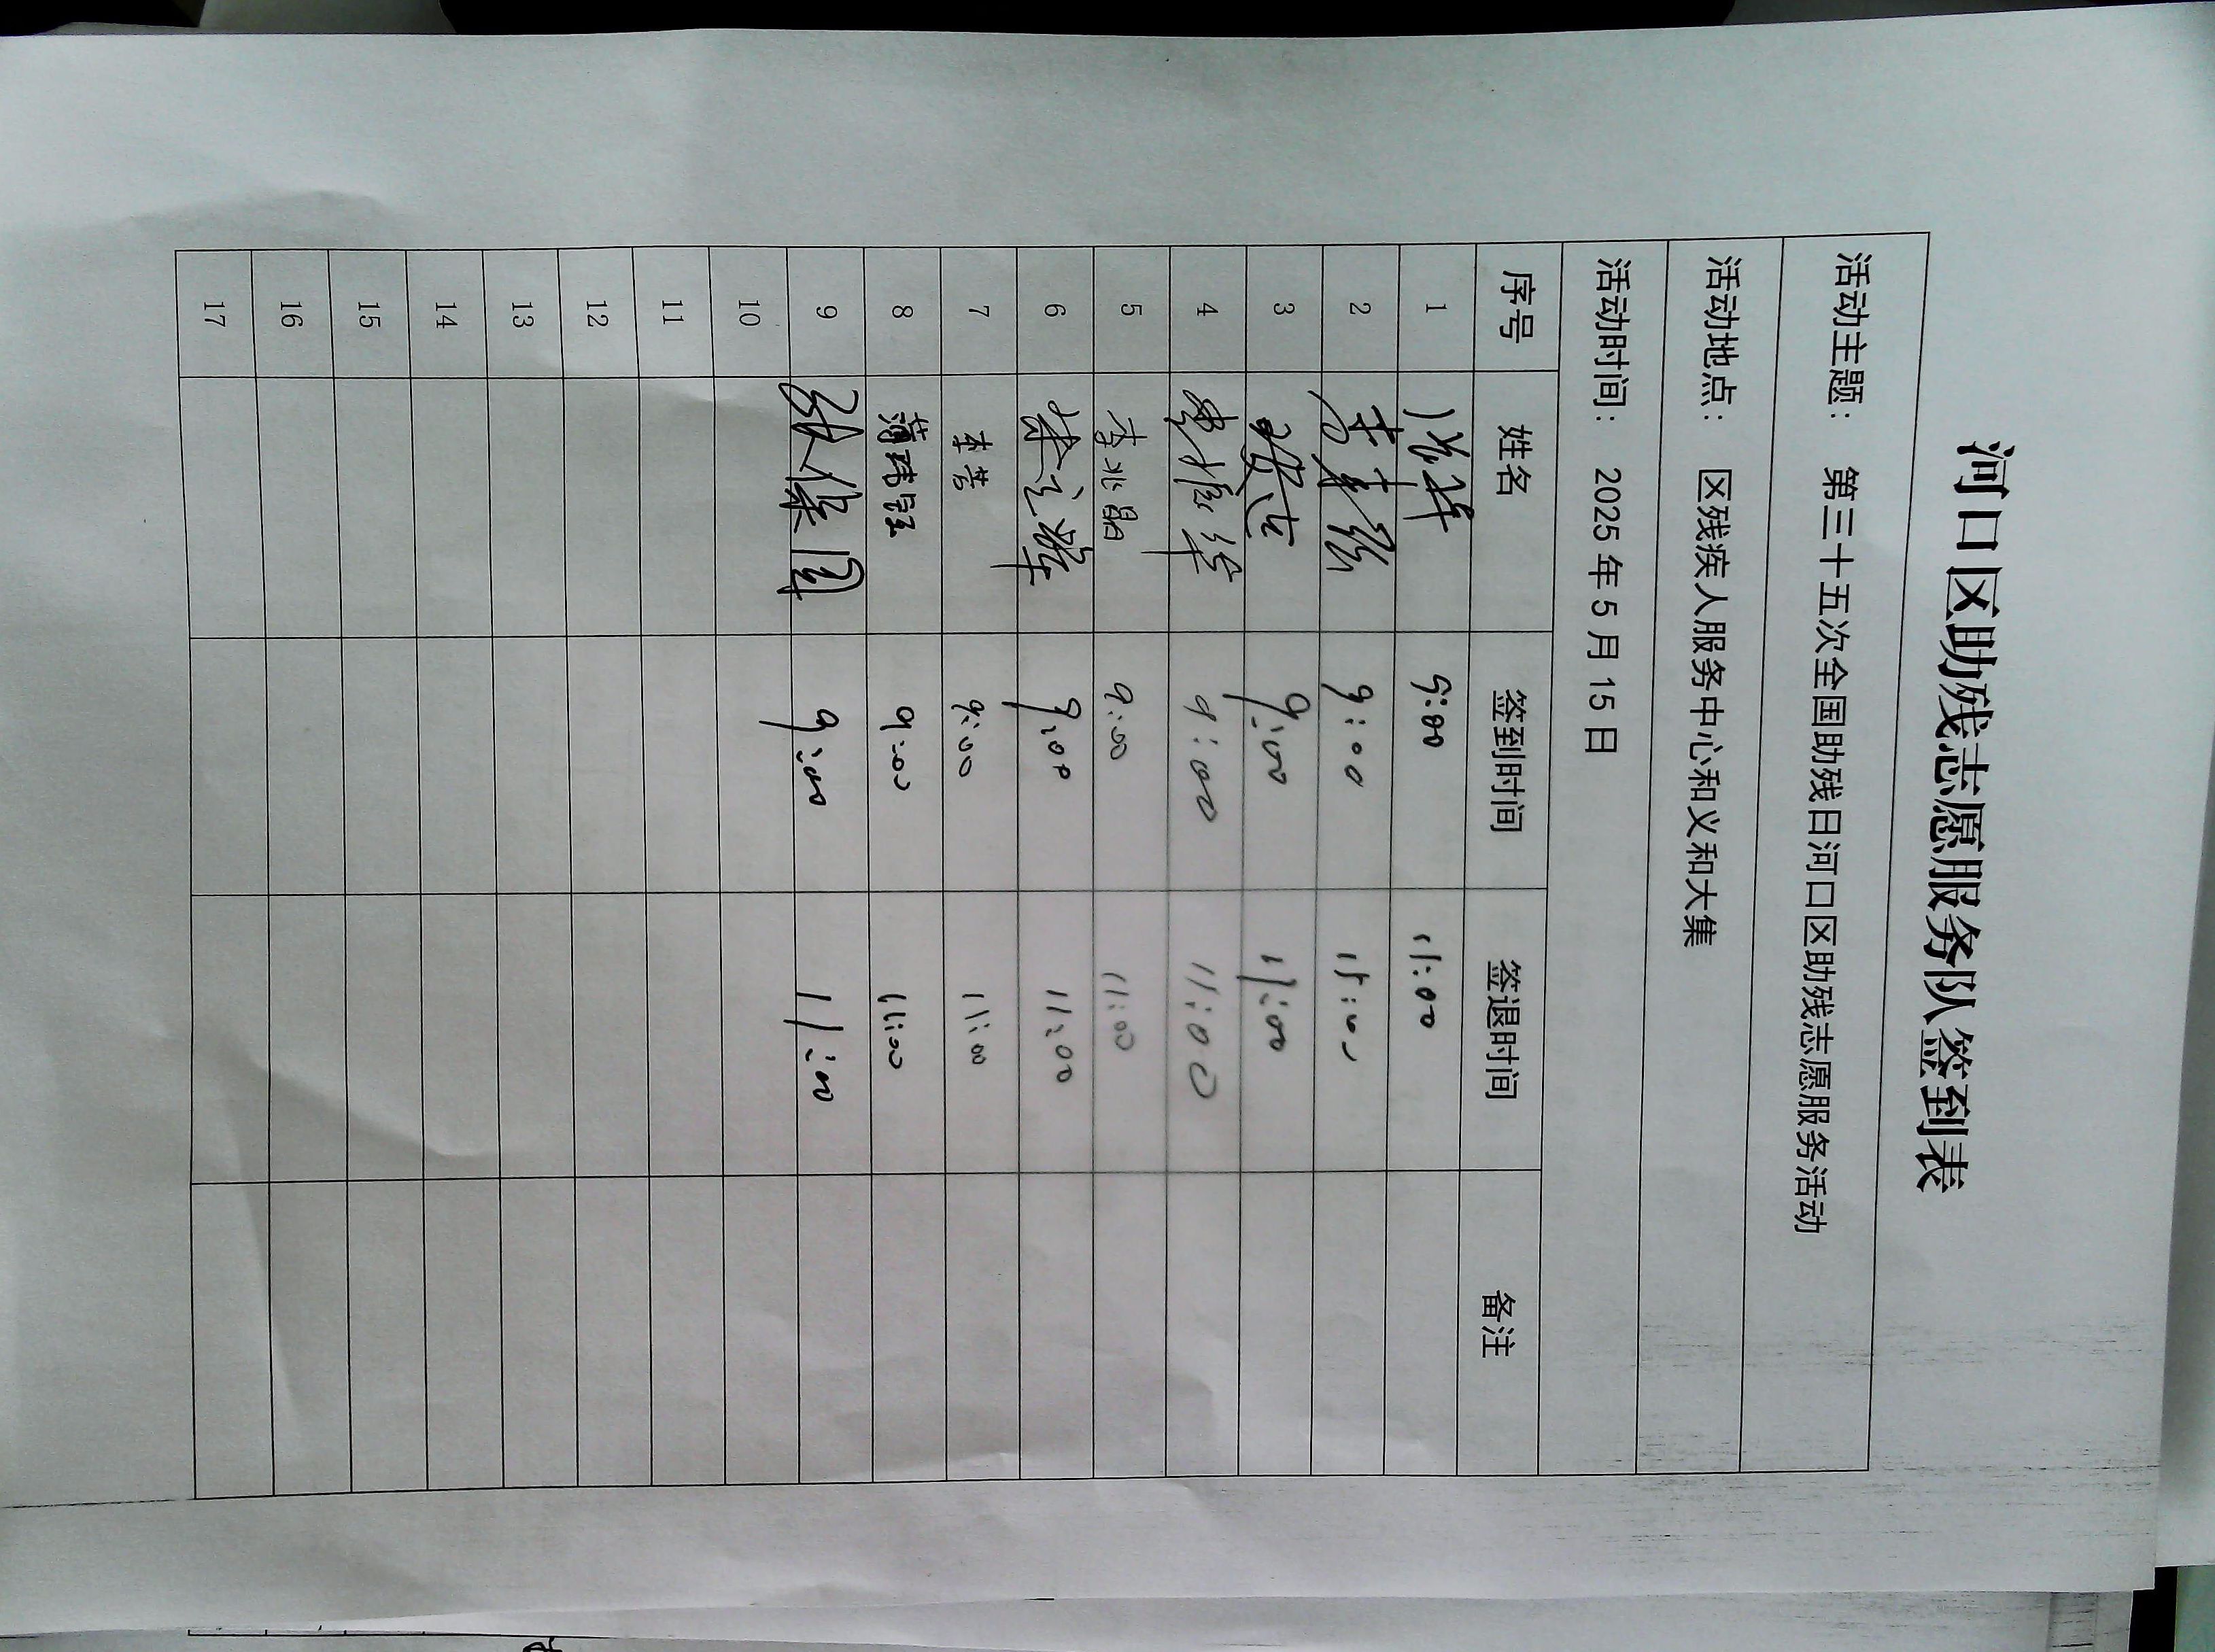 河口区助残志愿服务队签到表
活动主题： 第三十五次全国助残日河口区助残志愿服务活动
活动地点： 区残疾人服务中心和义和大集
活动时间： 2025年5月15日
序号 姓名 签到时间 签退时间 备注
1 9:00 11:00
2 9:00 11:00
3 9:00 11:00
4 9:00 11:00
5 李兆晶 9:00 11:00
6 9:00 11:00
7 李芳 9:00 11:00
8 9:00 11:00
9 9:00 11:00
10
11
12
13
14
15
16
17